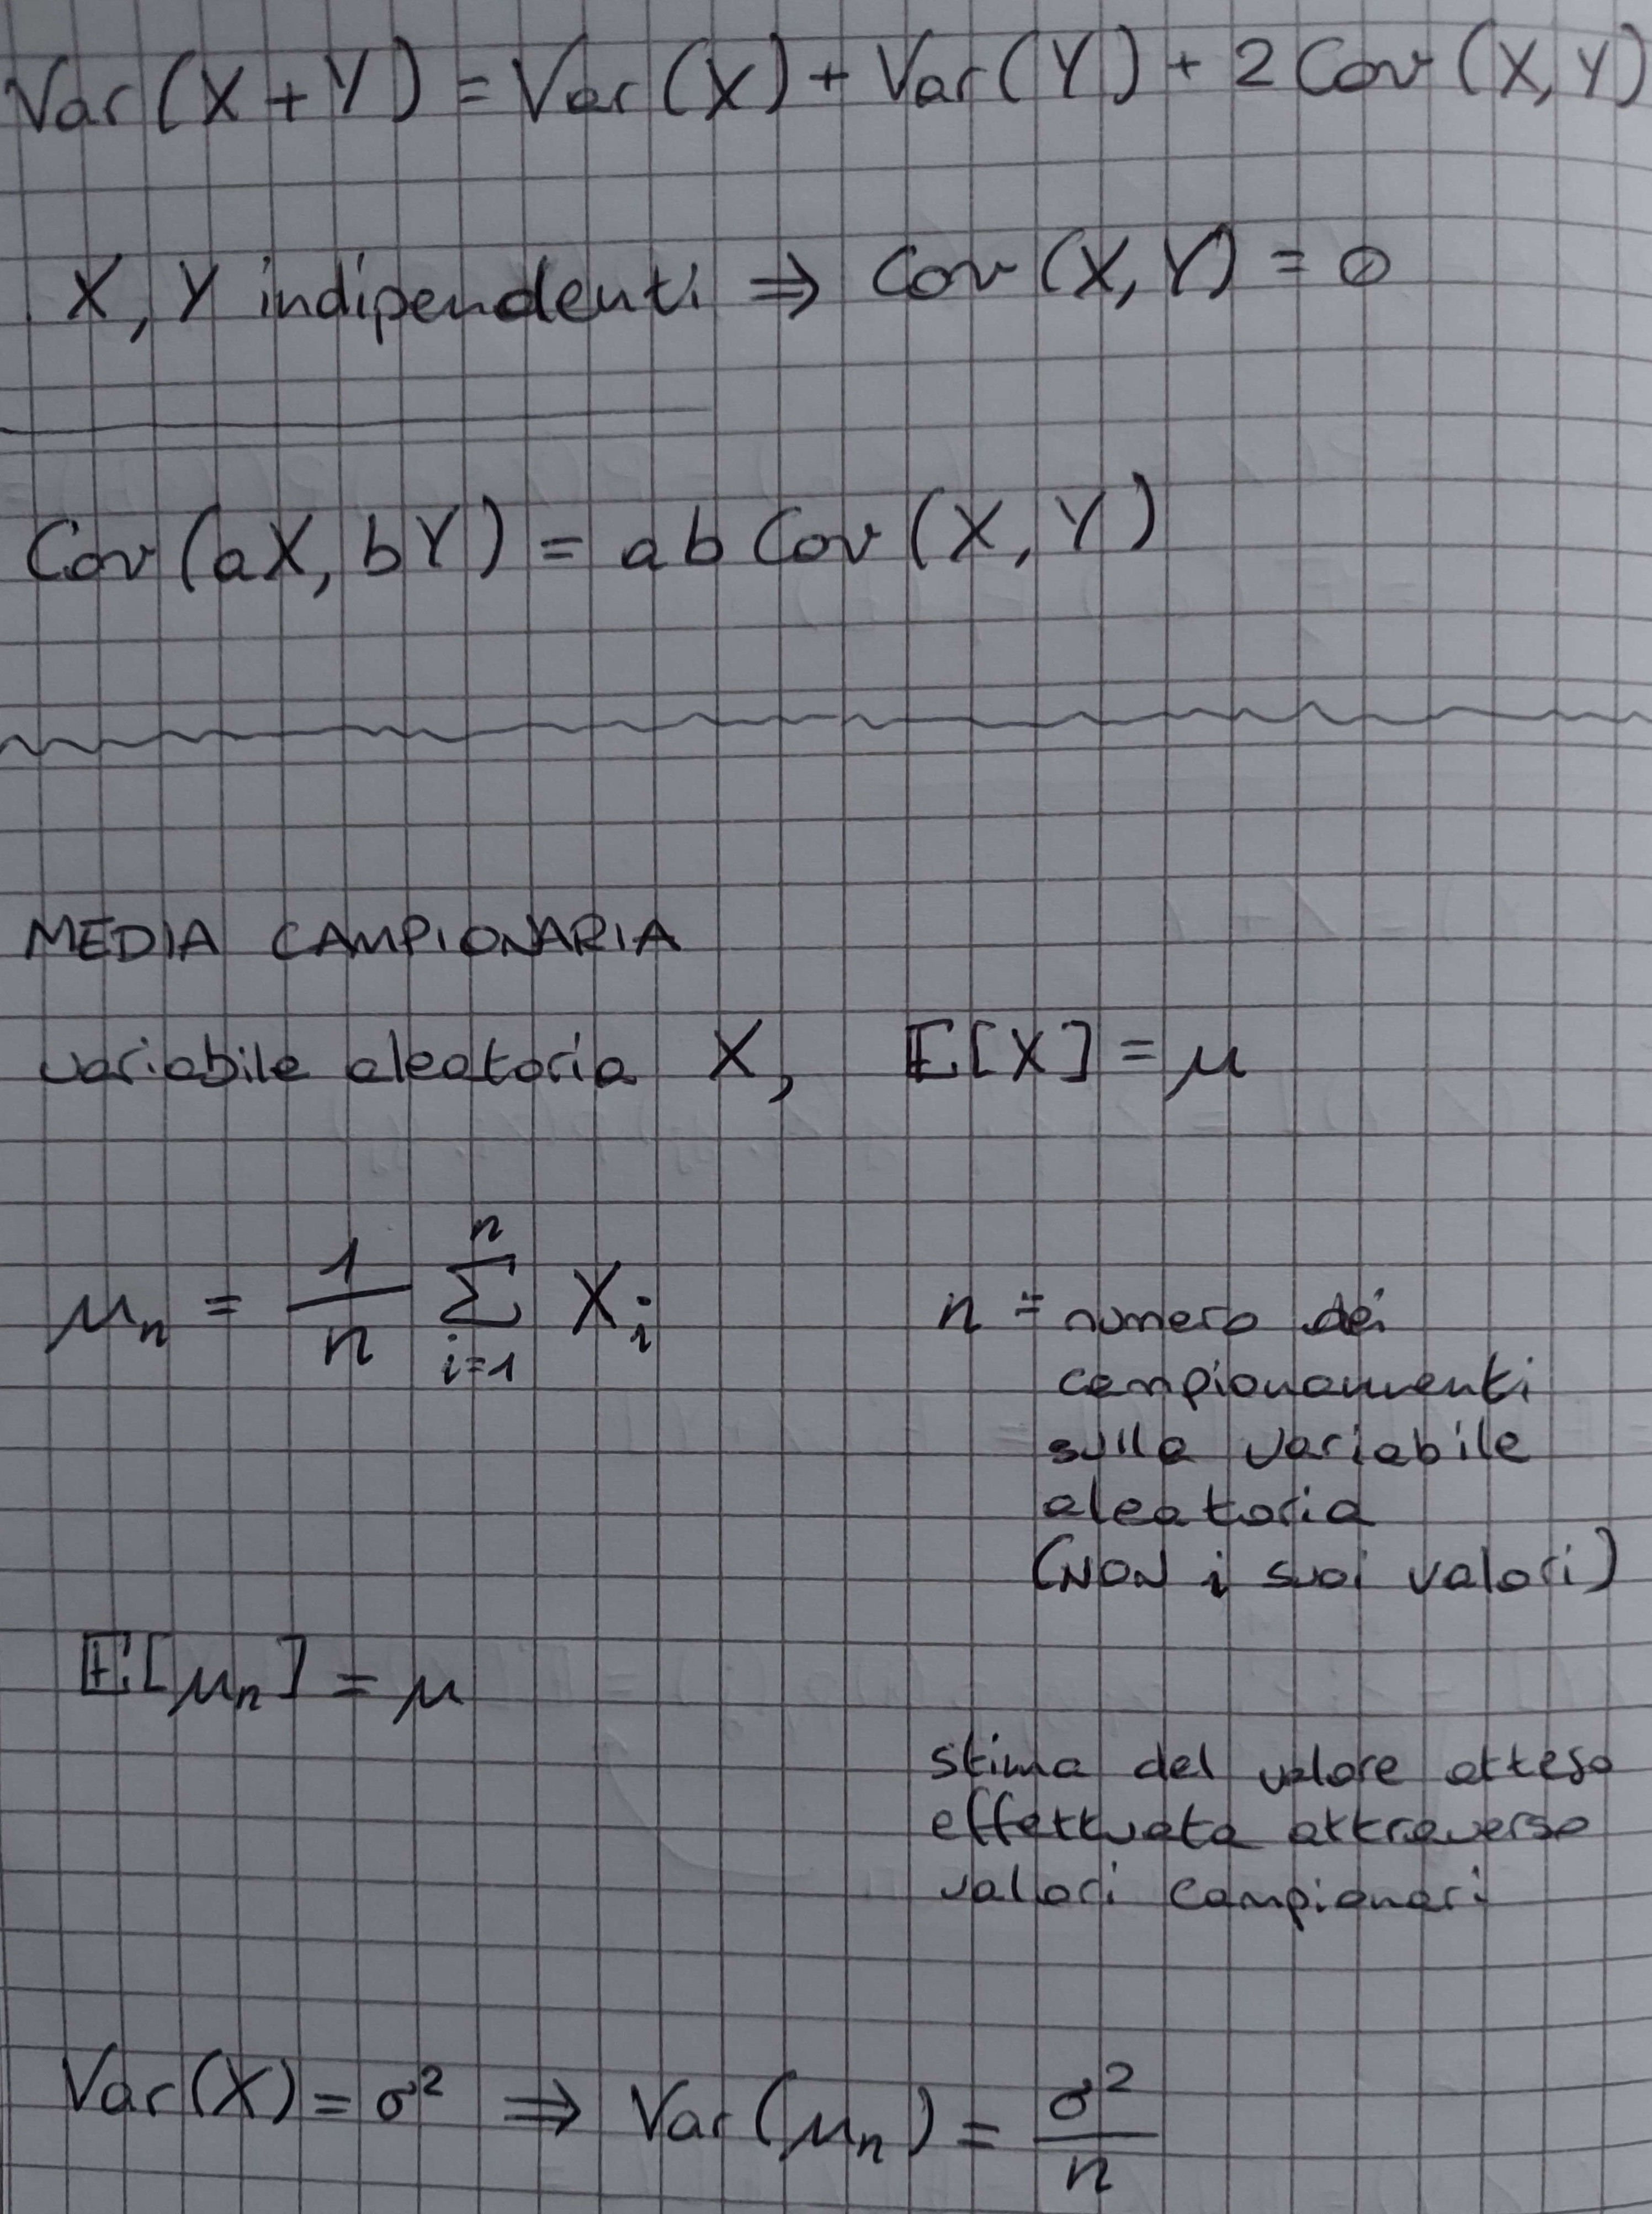 Var(X+Y) = Var(X) + Var(Y) + 2 Cov(X,Y)
X, Y indipendenti ⇒ Cov(X,Y) = 0
Cov(aX, bY) = ab Cov(X, Y)
MEDIA CAMPIONARIA
variabile aleatoria X, 𝔼[X] = μ
μₙ = 1/n ∑ᵢ₌₁ⁿ Xᵢ
n = numero dei
campionamenti
sulla variabile
aleatoria
(NON i suoi valori)
𝔼[μₙ] = μ
stima del valore atteso
effettuata attraverso
valori campionari
Var(X) = σ² ⇒ Var(μₙ) = σ²/n